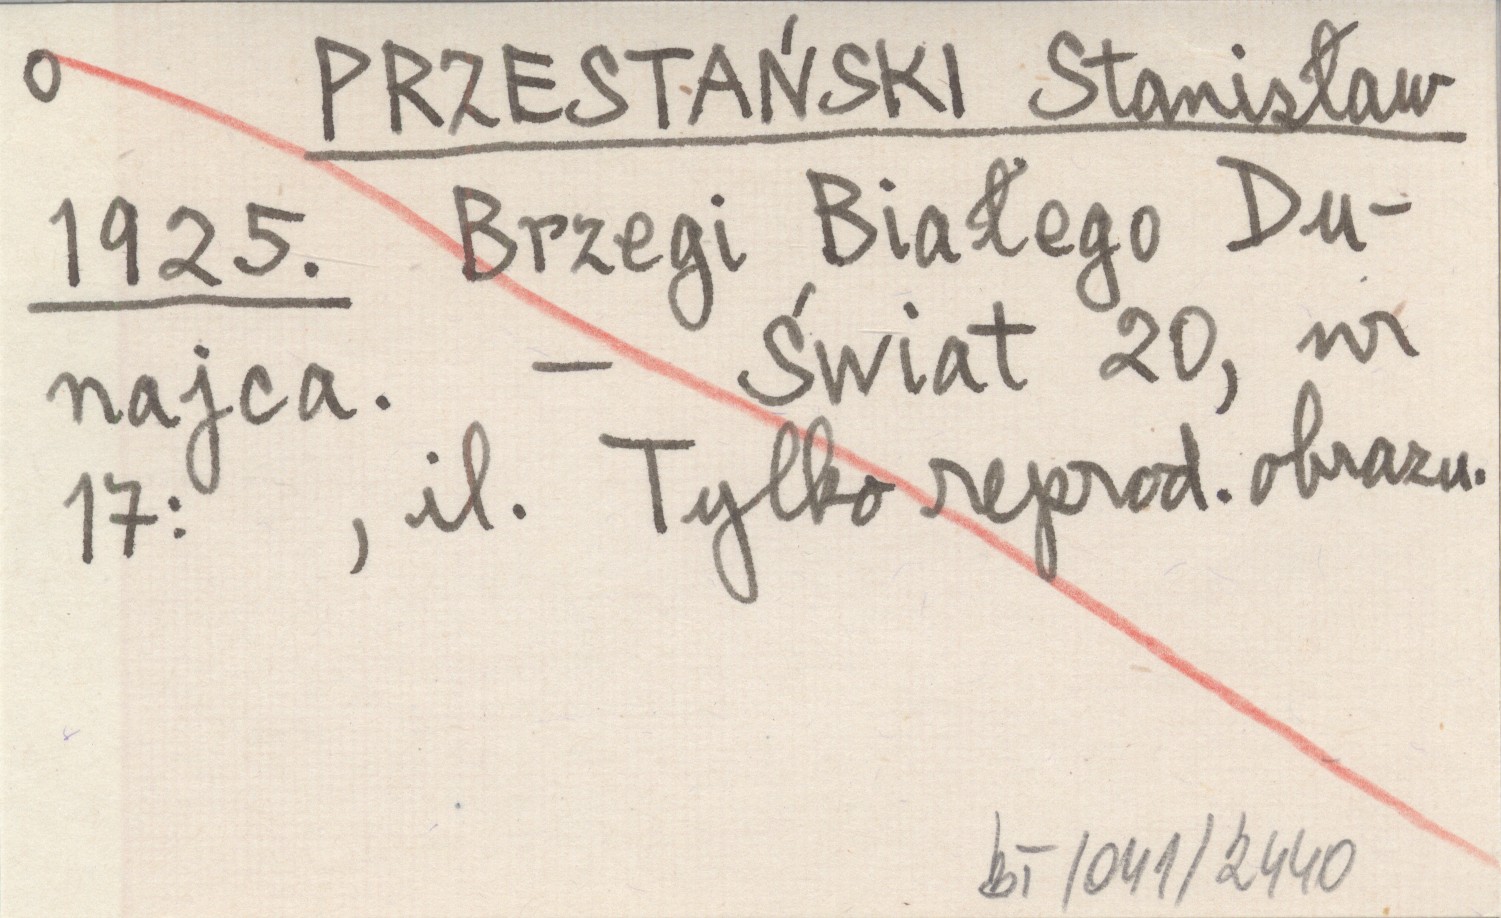 o PRZESTAŃSKI Stanisław
1925. Brzegi Białego Du-
najca. – Świat 20, nr
17: , il. Tylko reprod. obrazu.
bT/041/2440